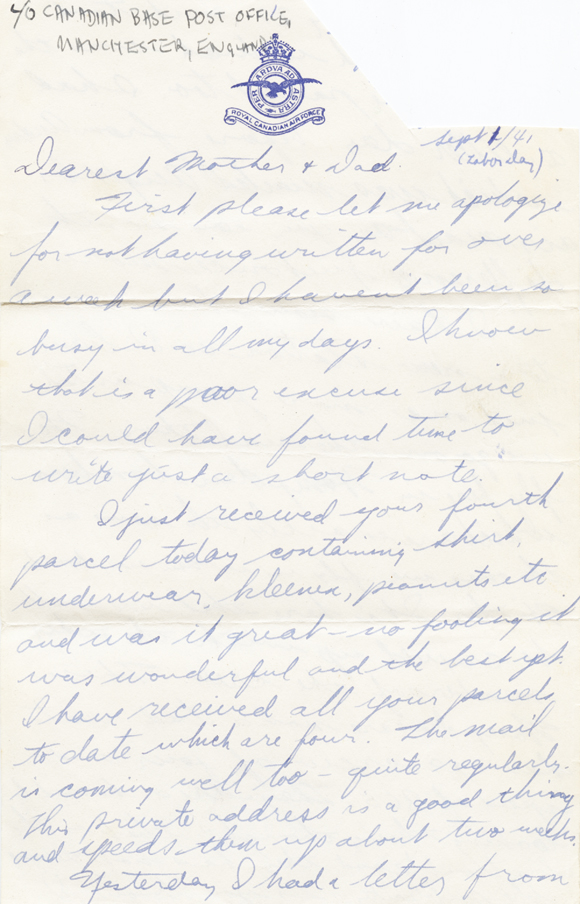 c/o CANADIAN BASE POST OFFICE,
MANCHESTER, ENGLAND
PER ARDVA AD ASTRA
ROYAL CANADIAN AIR FORCE
Sept 1/41
(Labor day)
Dearest Mother & Dad.
First please let me apologize
for not having written for over
a week but I haven't been so
busy in all my days. I know
that is a poor excuse since
I could have found time to
write just a short note.
I just received your fourth
parcel today containing shirt,
underwear, kleenex, peanuts etc
and was it great - no fooling it
was wonderful and the best yet.
I have received all your parcels
to date which are four. The mail
is coming well too - quite regularly.
This private address is a good thing
and speeds them up about two weeks.
Yesterday I had a letter from